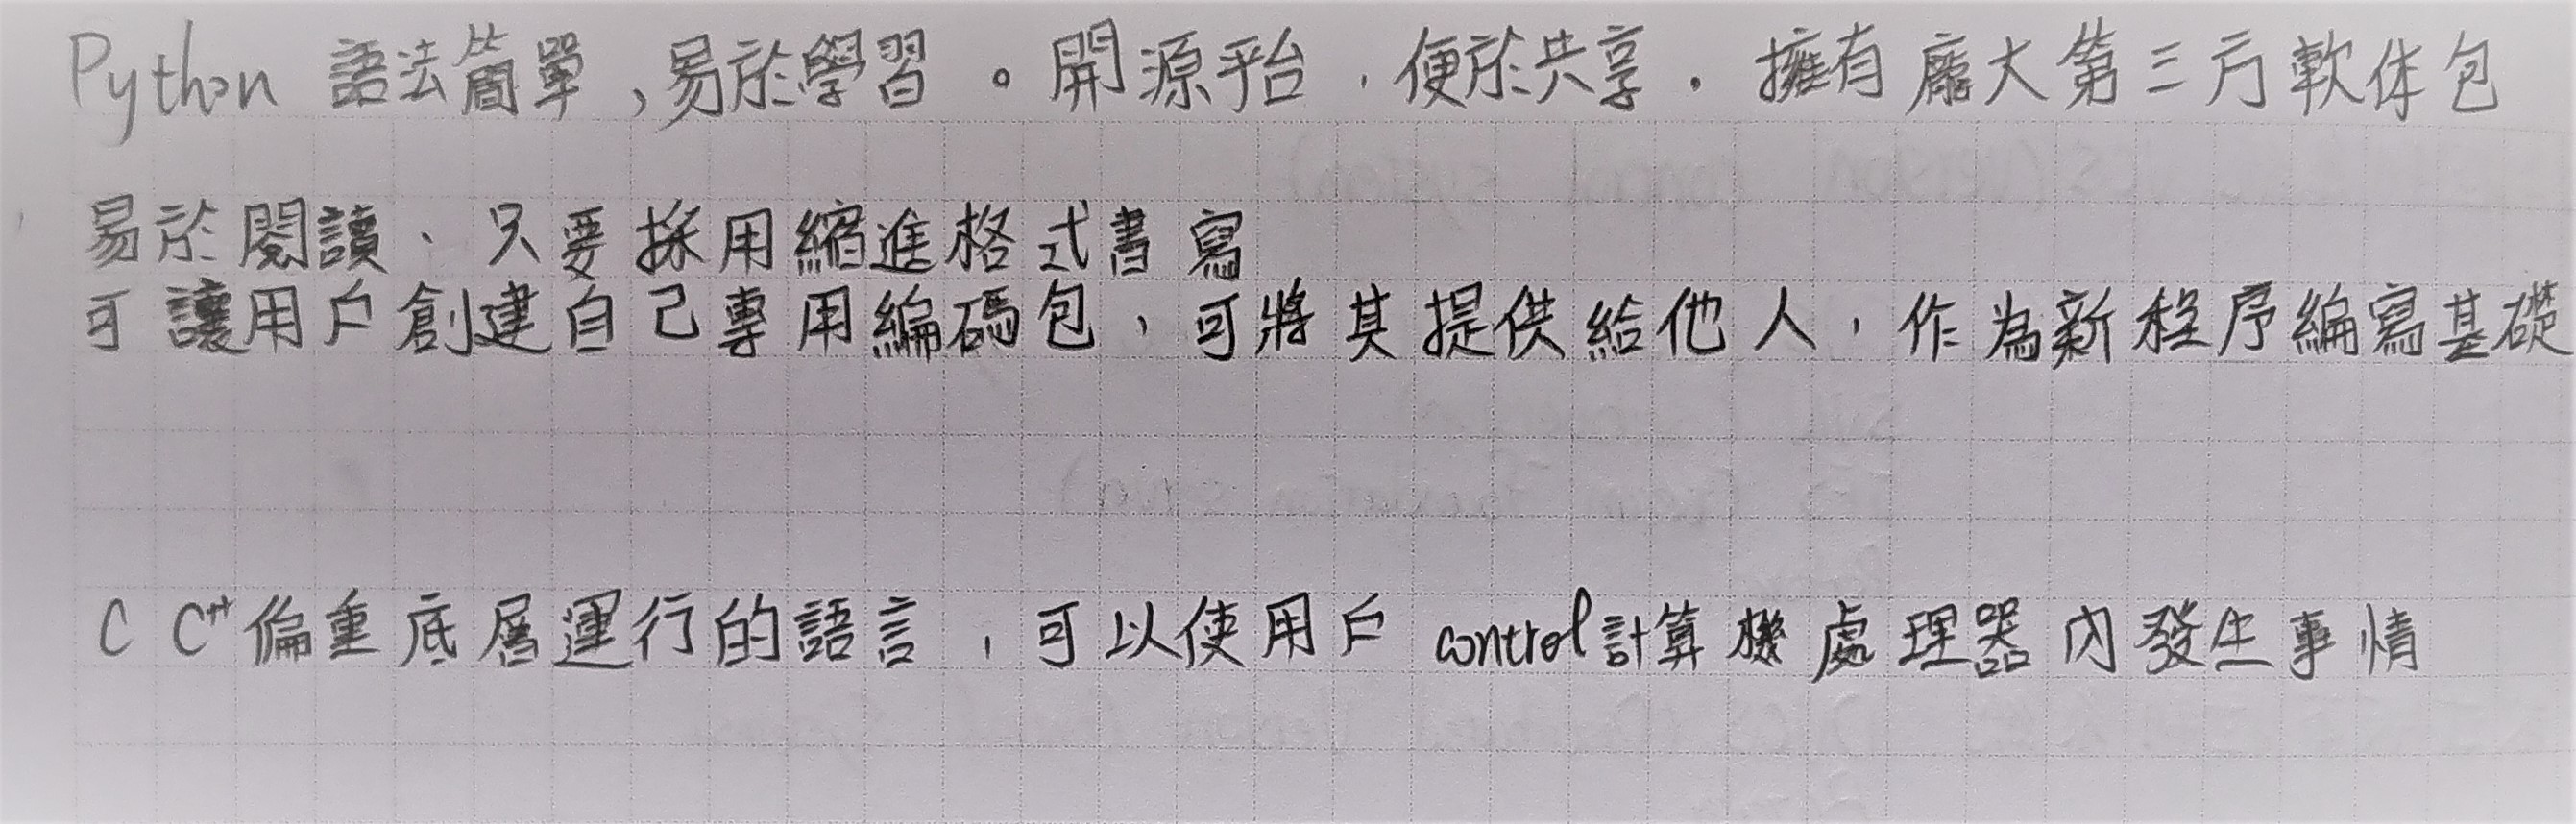 Python 語法簡單,易於學習。開源平台,便於共享.擁有龐大第三方軟体包
易於閱讀、只要採用縮進格式書寫
可讓用戶創建自己專用編碼包,可將其提供給他人,作為新程序編寫基礎
C C++偏重底層運行的語言,可以使用戶 control計算機處理器內發生事情